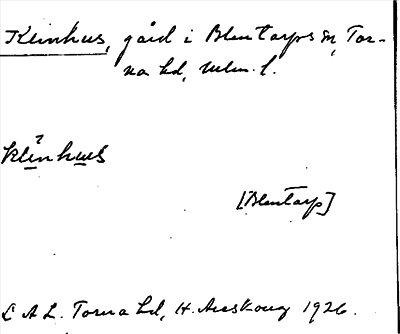 Klinhus, gård i Blentarps sn, Tor-
na hd, Mlm. l.
klinhus
[Blentarp]
L A L. Torna hd, H. Areskoug 1926.